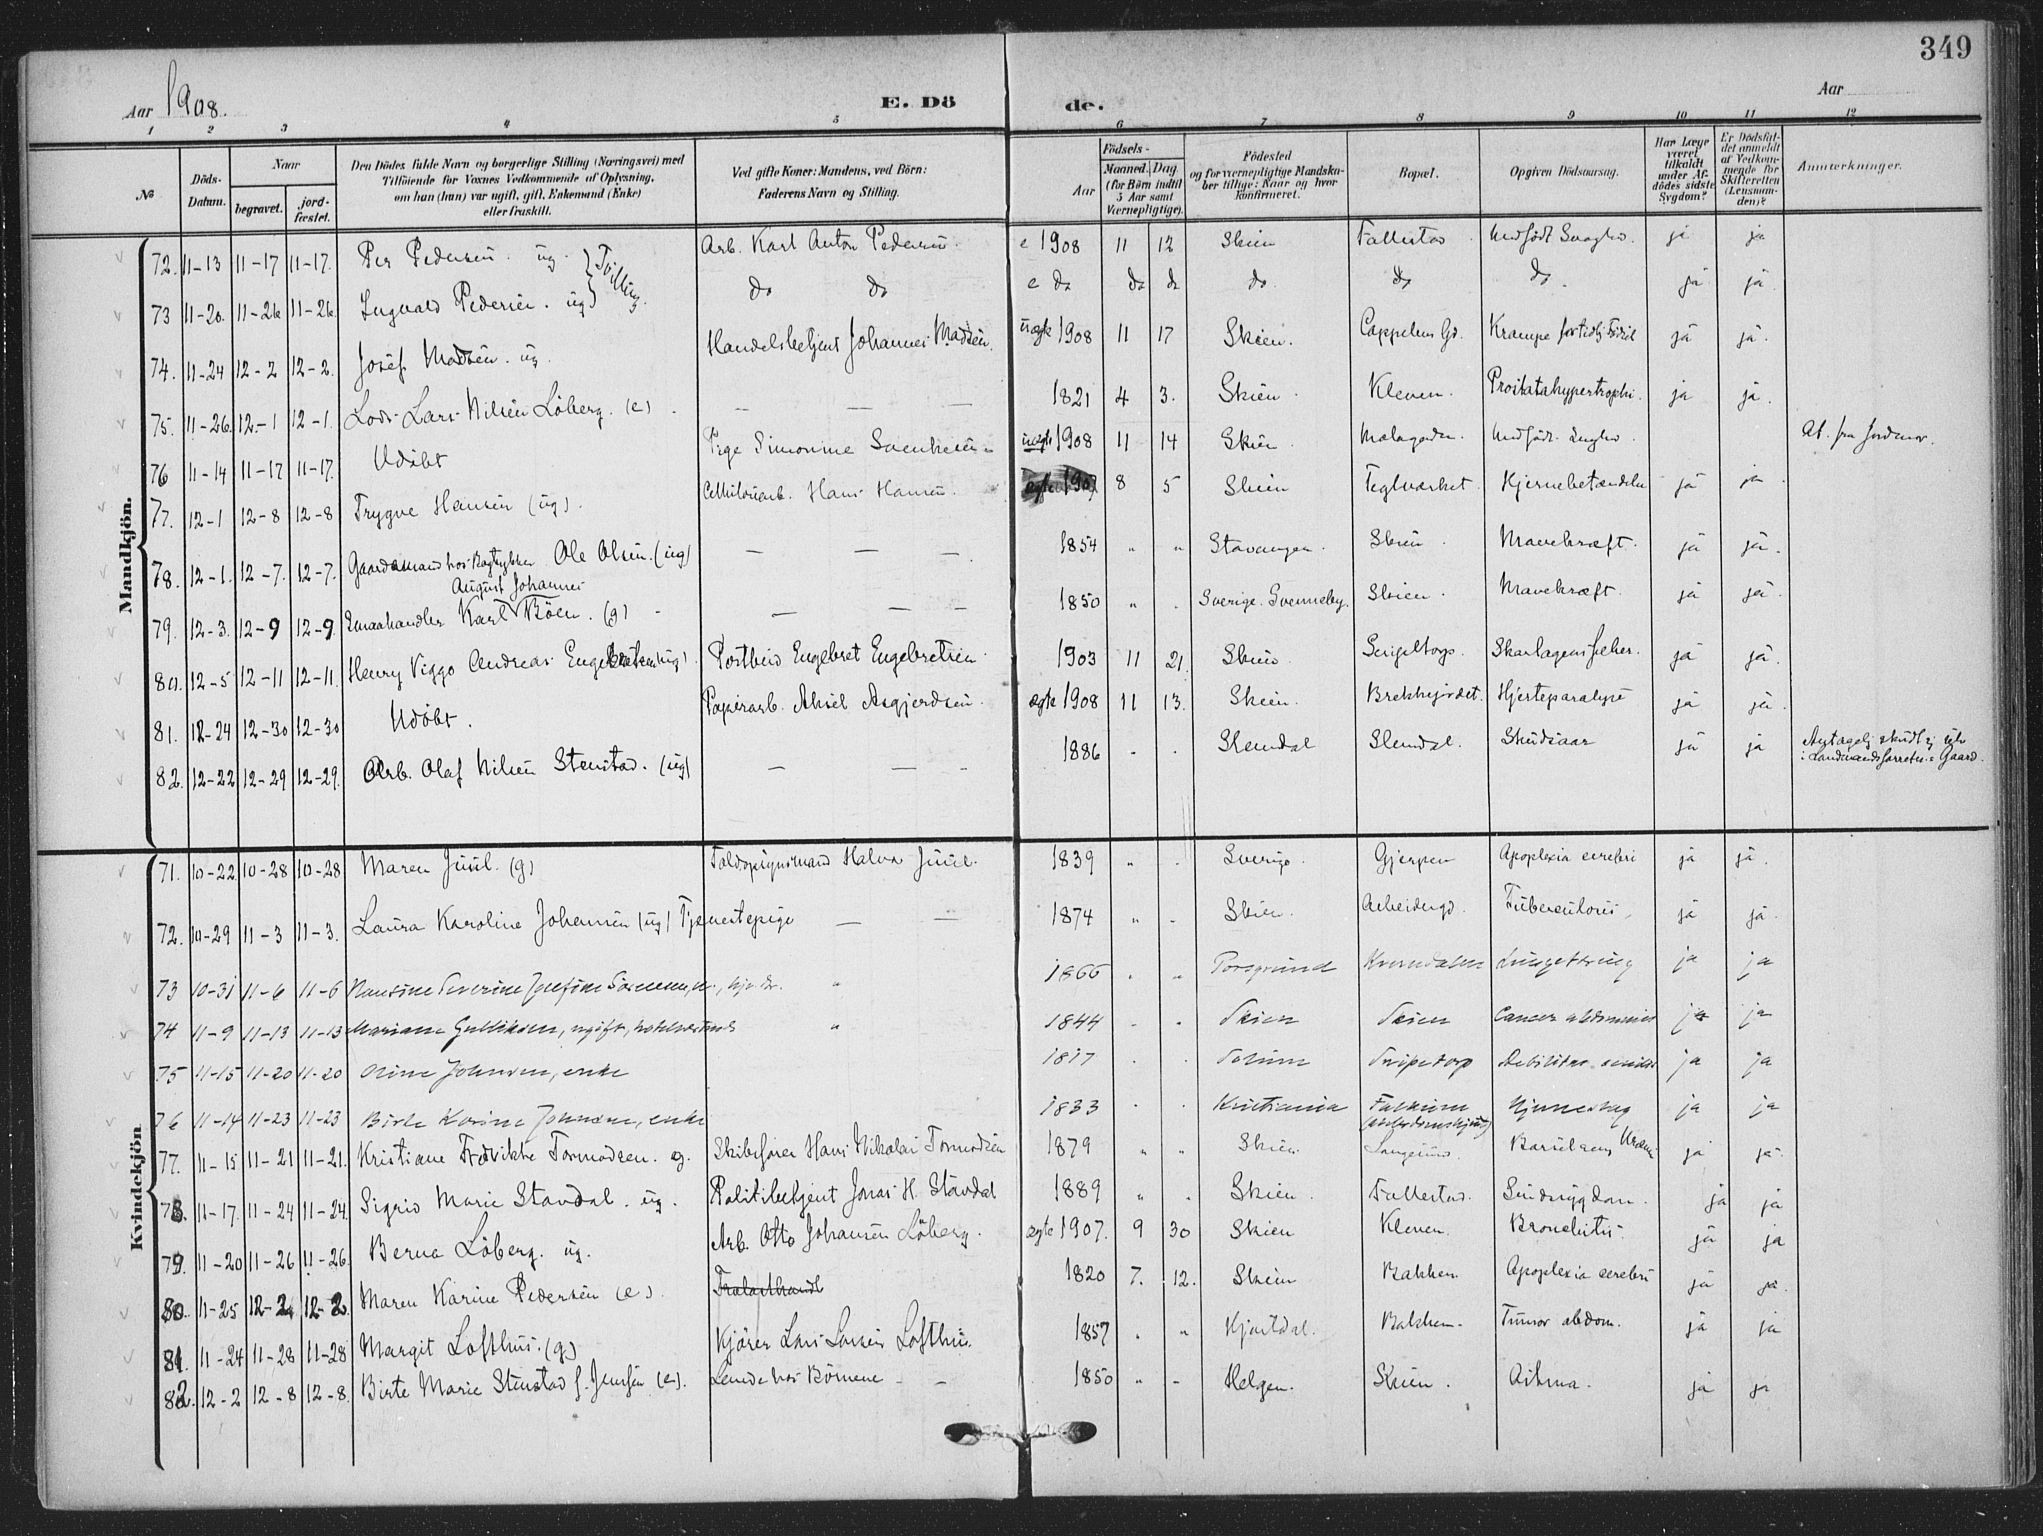 349
Aar 1908.
E. Dö de.
Aar
1 2 3 4 5 6 7 8 9 10 11 12
№
Döds-Datum.
Naar
begravet.
jord-fæstet.
Den Dödes fulde Navn og borgerlige Stilling (Næringsvei) med
Tilföiende for Voxnes Vedkommende af Oplysning,
om han (hun) var ugift, gift, Enkemand (Enke)
eller fraskilt.
Ved gifte Koner: Mandens, ved Börn:
Faderens Navn og Stilling.
Födsels-
Aar
Maaned. Dag.
(for Börn indtil 5 Aar samt Værnepligtige).
Födested
og for værnepligtige Mandskaber tillige: Naar og hvor konfirmeret.
Bopæl.
Opgiven Dödsaarsag.
Har Læge været tilkaldt under Afdödes sidste Sygdom?
Er Dödsfaldet anmeldt af Vedkommende for Skifteretten (Lensmanden)?
Anmærkninger.
Mandkjön.
72. 11-13 11-17 11-17. Per Pedersen. ug. } Tvilling. Arb. Karl Anton Pedersen. e 1908 11 12 Skien Falkestad Medfødt Svaghed. ja ja
73 11-20. 11-26 11-26. Ingvald Pedersen. ug do do e do do do do. do do. ja ja.
74. 11-24 12-2 12-2. Josef Madsen. ug. Handelsbetjent Johannes Madsen. uægte 1908 11 17 Skien. Cappelens Gd. Krampe ja ja.
75. 11-26. 12-1 12-1. Lods Lars Nilsen Löberg. (e) — — — 1821 4 3. Skien. Kleven. Prostatahypertrophi. ja ja.
76 11-14 11-17 11-17. Udöbt Pige Simonine uægte 1908 11 14 Skien. Medfödt Svaghed. At. fra Jordmor.
77. 12-1 12-8 12-8 Trygve Hansen (ug). Hans Hansen. ægte 1907 8 5 Skien Teglværket. Hjernebetændelse ja ja.
78. 12-1. 12-7. 12-7. Gaardsmand hos Bogtrykker Ole Olsen. (ug) — — — 1854 " " Stavanger. Skien. Mavekræft. ja ja.
79. 12-3. 12-9 12-9. Smaahandler Karl August Johannes Böen. (g) — — — 1850 " . Sverige. Skien. Mavekræft. ja ja.
80. 12-5 12-11 12-11. Henry Viggo Andreas Engebretsen (ug) Postbud Engebret Engebretsen. 1903 11 21. Skien. Snipetorp. Skarlagensfeber. ja ja.
81. 12-24 12-30 12-30 Udöbt. Papirarb. Aksel Asgjerdsen. ægte 1908 11 13. Skien. Brekkejordet. Hjerteparalyse ja ja.
82. 12-22 12-29 12-29. Arb. Olaf Nilsen Stenstad. (ug) — — — 1886 . . Slemdal Slemdal. Skudsaar ja ja Antagelig skudt sig selv i Landmandsforretn.s Gaard.
Kvindekjön
71. 10-22 10-28 10-28 Maren Juul. (g) Halvor Juul. 1839 " . Sverige. Gjerpen Apoplexia cerebri ja ja.
72. 10-29 11-3 11-3. Laura Karoline Johansen (ug) Tjenestepige — — 1874 " . Skien. Arbeidergd. Tuberculosis, ja ja.
73 10-31 11-6 11-6 Hansine Severine Josefine " 1866 . " Porsgrund Kverndalen Lungetæring ja ja
74 11-9 11-13 11-13 Mariane Gulliksen, ugift, " 1844 . . Skien Skien Cancer abdominis ja ja
75 11-15 11-20 11-20 Oline Johnsen, enke 1817 . . Solum Snipetorp Debilitas senilis ja ja
76 11-14 11-23 11-23 Birte Karine Johnsen, enke 1833 . . Kristiania Falkum (Alderdomshjem) Hjerneslag ja ja
77. 11-15 11-21 11-21. Kristiane Fredrikke Tormodsen. g. Skibsförer Hans Nikolai Tormodsen 1879 " " Skien. Barselseng ja ja.
78. 11-17. 11-24 11-24. Sigrid Marie Stavdal. ug. Politibetjent Jonas H. Stavdal 1889 " . Skien. Falkestad. Sindssygdom. ja ja
79. 11-20 11-26 11-26. Berna Löberg. ug. Arb. Otto Johansen Löberg. ægte 1907. 9 30 Skien Kleven. Bronchitis. ja ja
80. 11-25 12-2 12-2. Maren Karine Pedersen (e). Trælasthandl 1820 7. 12. Skien Bakken. Apoplexia cerebri ja ja.
81 11-24 11-28 11-28 Margit Lofthus. (g) Kjörer Lars Larsen Lofthus. 1857 " " Hjartdal. Bakken. Tumor abdom. ja ja
82. 12-2 12-8 12-8. Birte Marie Stenstad f. Jensen (e). Levede hos Börnene - - 1850 " - Helgen. Skien. Astma. ja ja